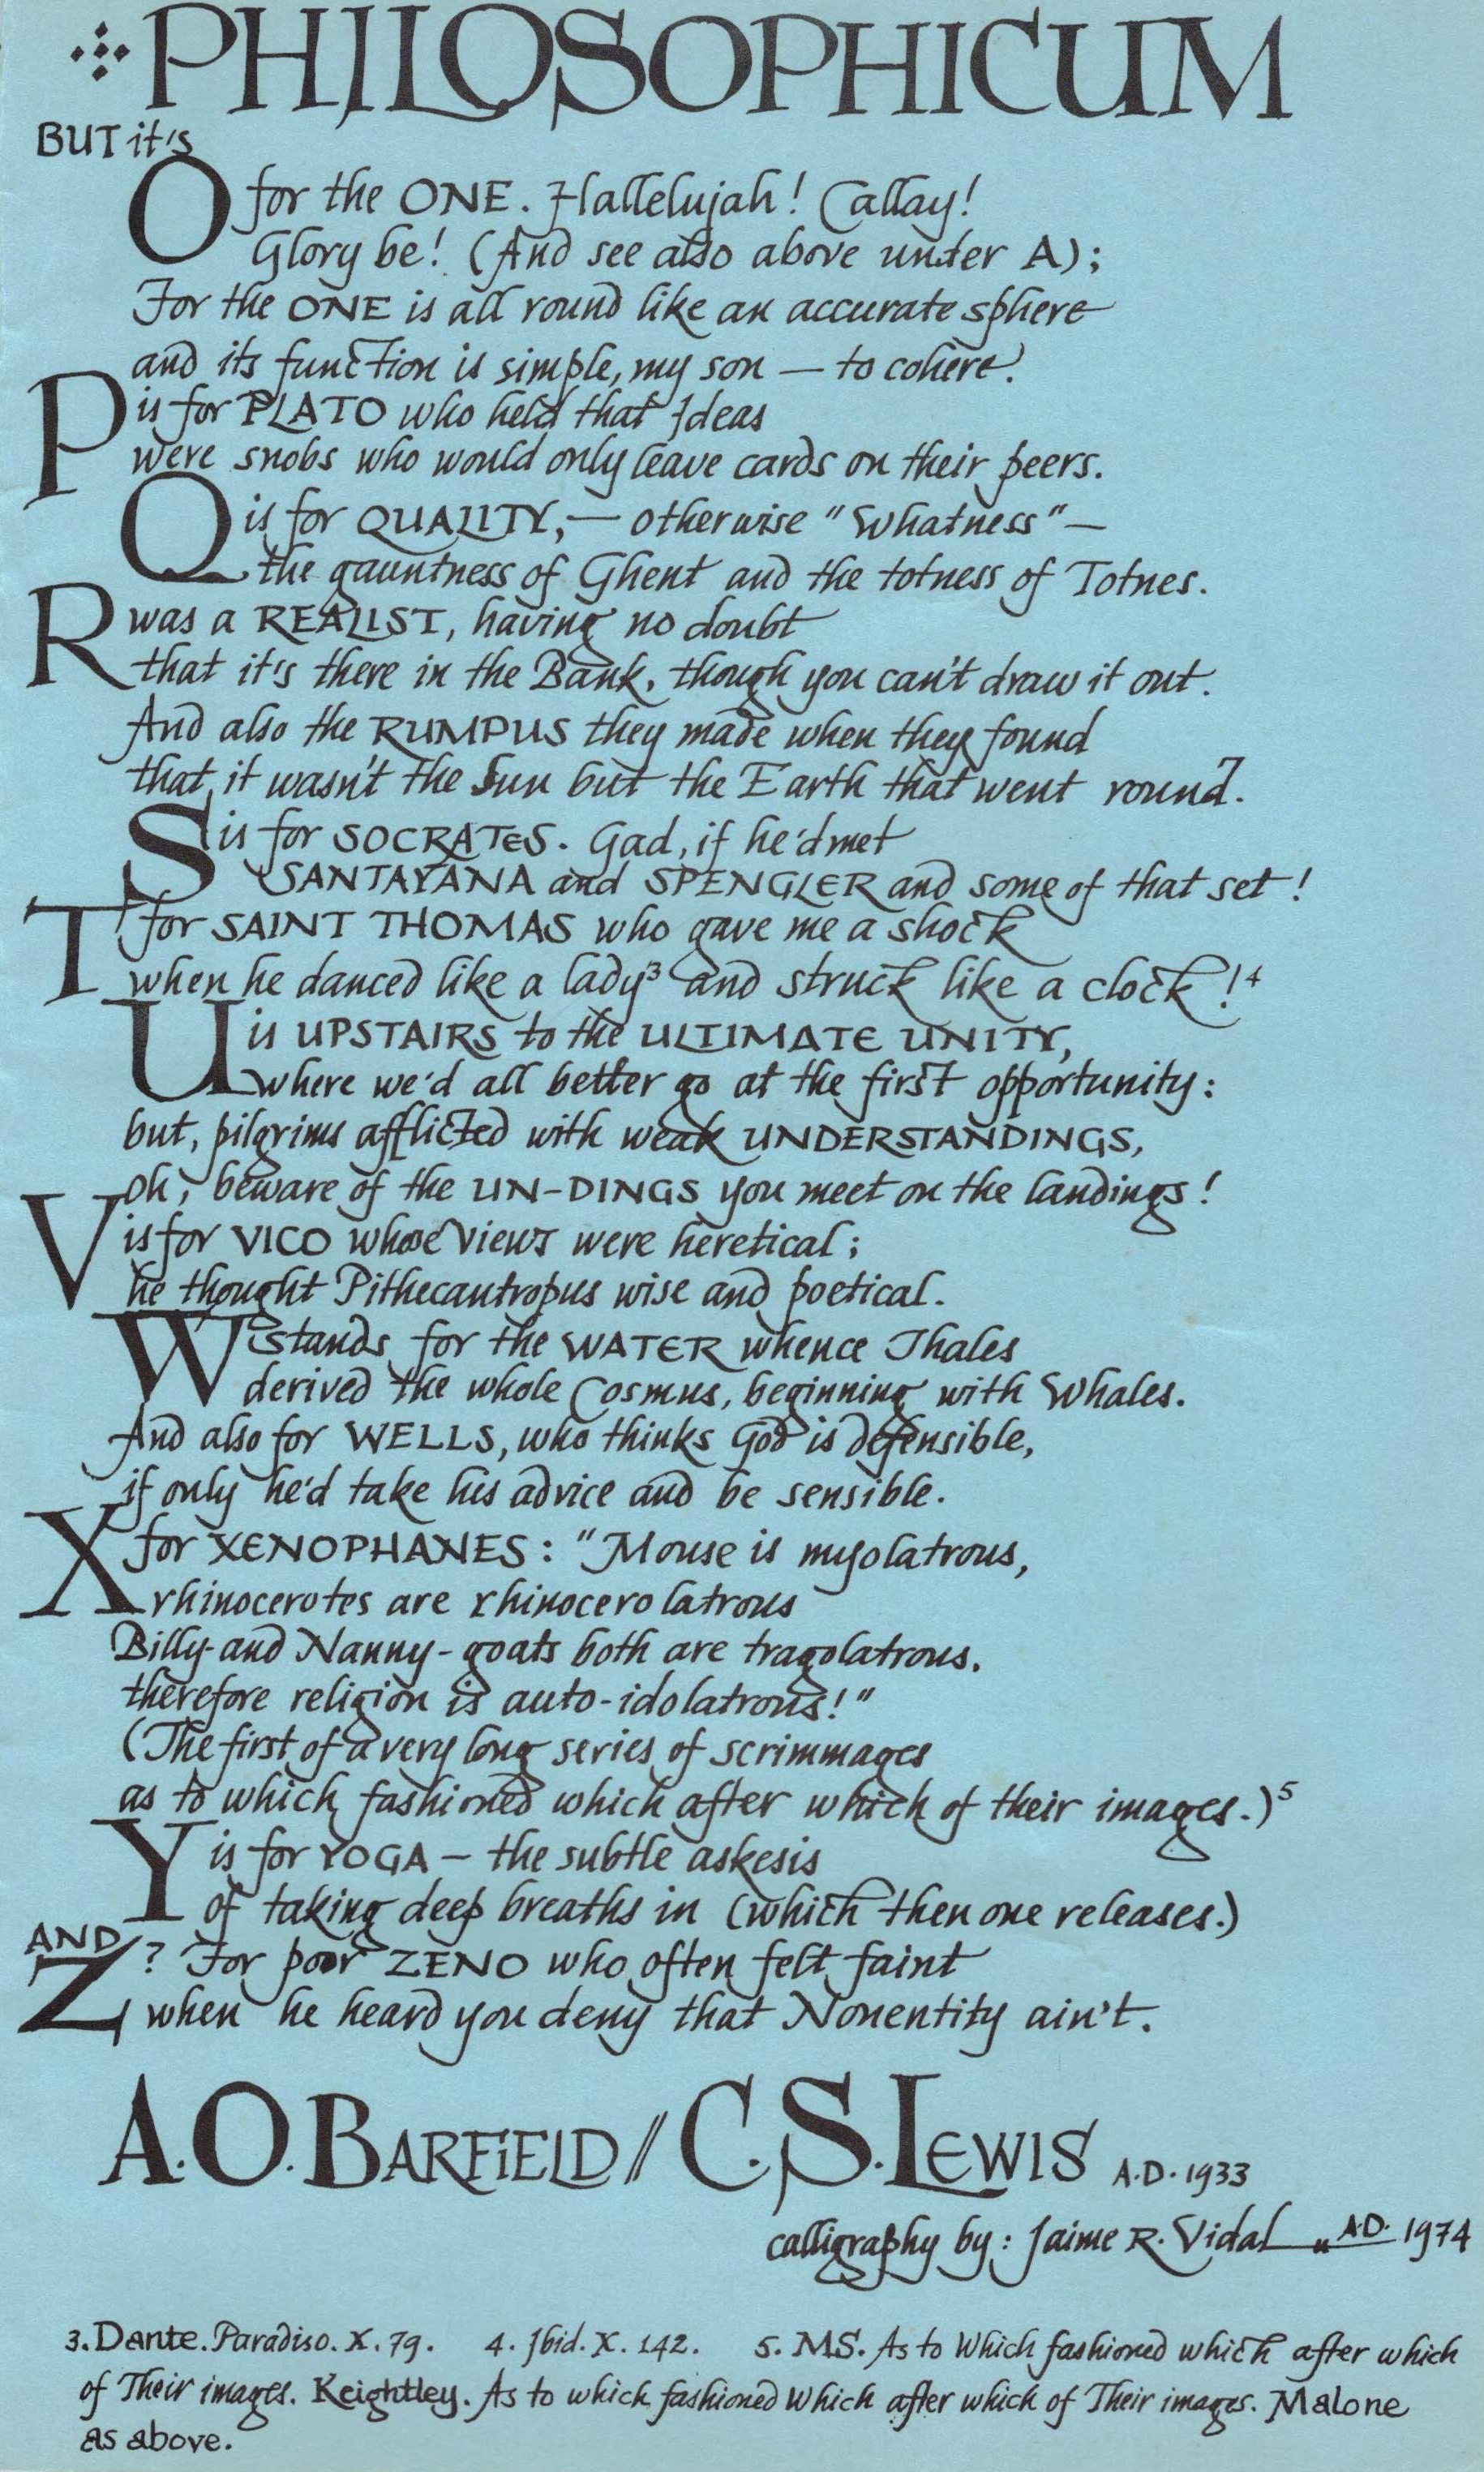 PHILOSOPHICUM
BUT it's
O for the ONE. Hallelujah! Callay!
Glory be! (And see also above under A);
For the ONE is all round like an accurate sphere
and its function is simple, my son — to cohere.
P is for PLATO who held that Ideas
were snobs who would only leave cards on their peers.
Q is for QUALITY,— otherwise "Whatness"—
the gauntness of Ghent and the totness of Totnes.
R was a REALIST, having no doubt
that it's there in the Bank, though you can't draw it out.
And also the RUMPUS they made when they found
that it wasn't the Sun but the Earth that went round.
S is for SOCRATES. Gad, if he'd met
SANTAYANA and SPENGLER and some of that set!
T for SAINT THOMAS who gave me a shock
when he danced like a lady³ and struck like a clock!⁴
U is UPSTAIRS to the ULTIMATE UNITY,
where we'd all better go at the first opportunity:
but, pilgrims afflicted with weak UNDERSTANDINGS,
oh, beware of the UN-DINGS you meet on the landings!
V is for VICO whose views were heretical;
he thought Pithecantropus wise and poetical.
W stands for the WATER whence Thales
derived the whole Cosmus, beginning with Whales.
And also for WELLS, who thinks God is defensible,
if only he'd take his advice and be sensible.
X for XENOPHANES: "Mouse is myolatrous,
rhinocerotes are rhinocerolatrous
Billy-and Nanny-goats both are tragolatrous,
therefore religion is auto-idolatrous!"
(The first of a very long series of scrimmages
as to which fashioned which after which of their images.)⁵
Y is for YOGA — the subtle askesis
of taking deep breaths in (which then one releases.)
AND
Z? For poor ZENO who often felt faint
when he heard you deny that Nonentity ain't.
A.O. BARFIELD // C.S. LEWIS A.D. 1933
calligraphy by: Jaime R. Vidal " A.D. 1974
3. Dante. Paradiso. X. 79. 4. Ibid. X. 142. 5. MS. As to Which fashioned which after which
of Their images. Keightley. As to which fashioned Which after which of Their images. Malone
as above.